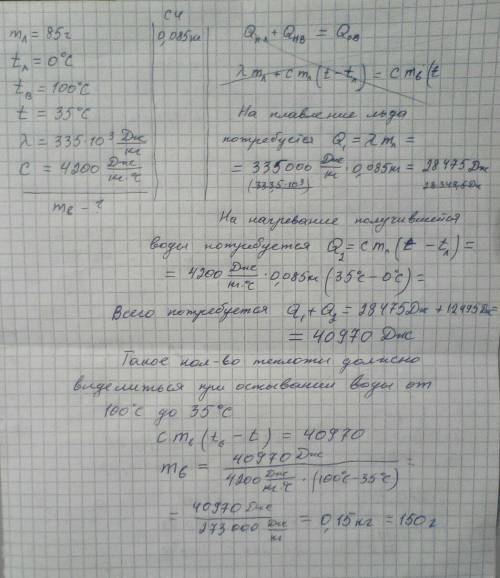 СИ
mл = 85г | 0,085кг
tл = 0°С
tв = 100°С
t = 35°С
λ = 335·10³ Дж/кг
С = 4200 Дж/кг·°С
mв - ?
Qпл + Qнв = Qов
λ mл + С mл (t - tл) = С mв (t
На плавление льда
потребуется Q₁ = λ mл =
= 335000 Дж/кг · 0,085кг = 28475 Дж
На нагревание получившейся
воды потребуется Q₂ = С mл (t - tл) =
= 4200 Дж/кг·°С · 0,085кг (35°С - 0°С) =
Всего потребуется Q₁ + Q₂ = 28475 Дж + 12495 Дж =
= 40970 Дж
Такое кол-во теплоты должно
выделиться при остывании воды от
100°С до 35°С
С mв (tв - t) = 40970
mв = 40970 Дж / 4200 Дж/кг·°С · (100°С - 35°С) =
= 40970 Дж / 273000 Дж/кг = 0,15кг = 150г